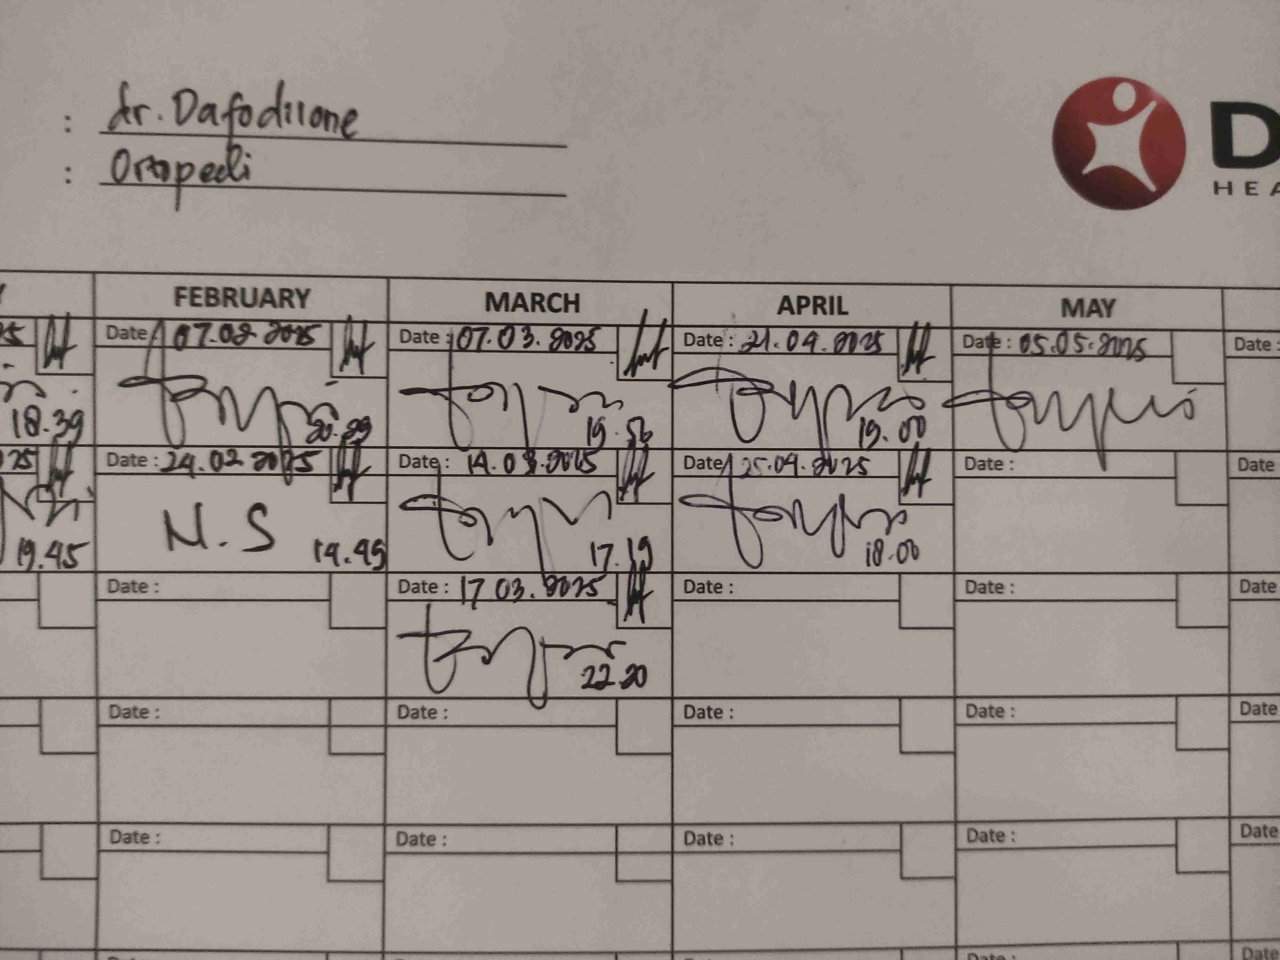 : dr. Dafodilone
: Ortopedi
D
HEA
FEBRUARY MARCH APRIL MAY
Date : 07.02.2025 Date : 07.03.2025 Date : 21.04.2025 Date : 05.05.2025 Date :
18.39 19.56 19.00
25 Date : 24.02.2025 Date : 14.03.2025 Date 25.04.2025 Date : Date
19.45 N.S 14.45 17.19 18.00
Date : Date : 17 03.2025 Date : Date : Date
22.20
Date : Date : Date : Date : Date
Date : Date : Date : Date : Date
Date